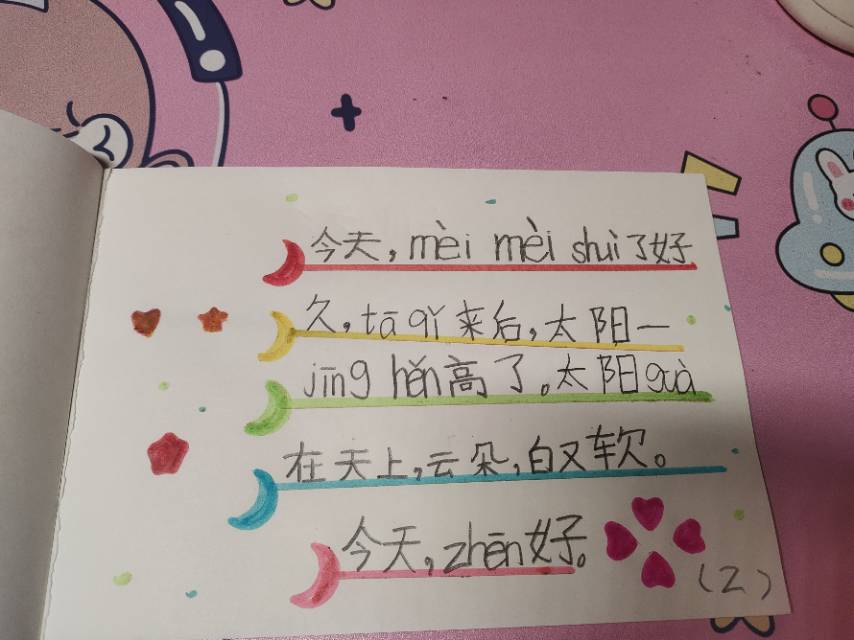 今天，mèi mèi shuì了好
久，tā qǐ来后，太阳一
jīng hěn高了。太阳guà
在天上，云朵，白又软。
今天，zhēn好。
（2）